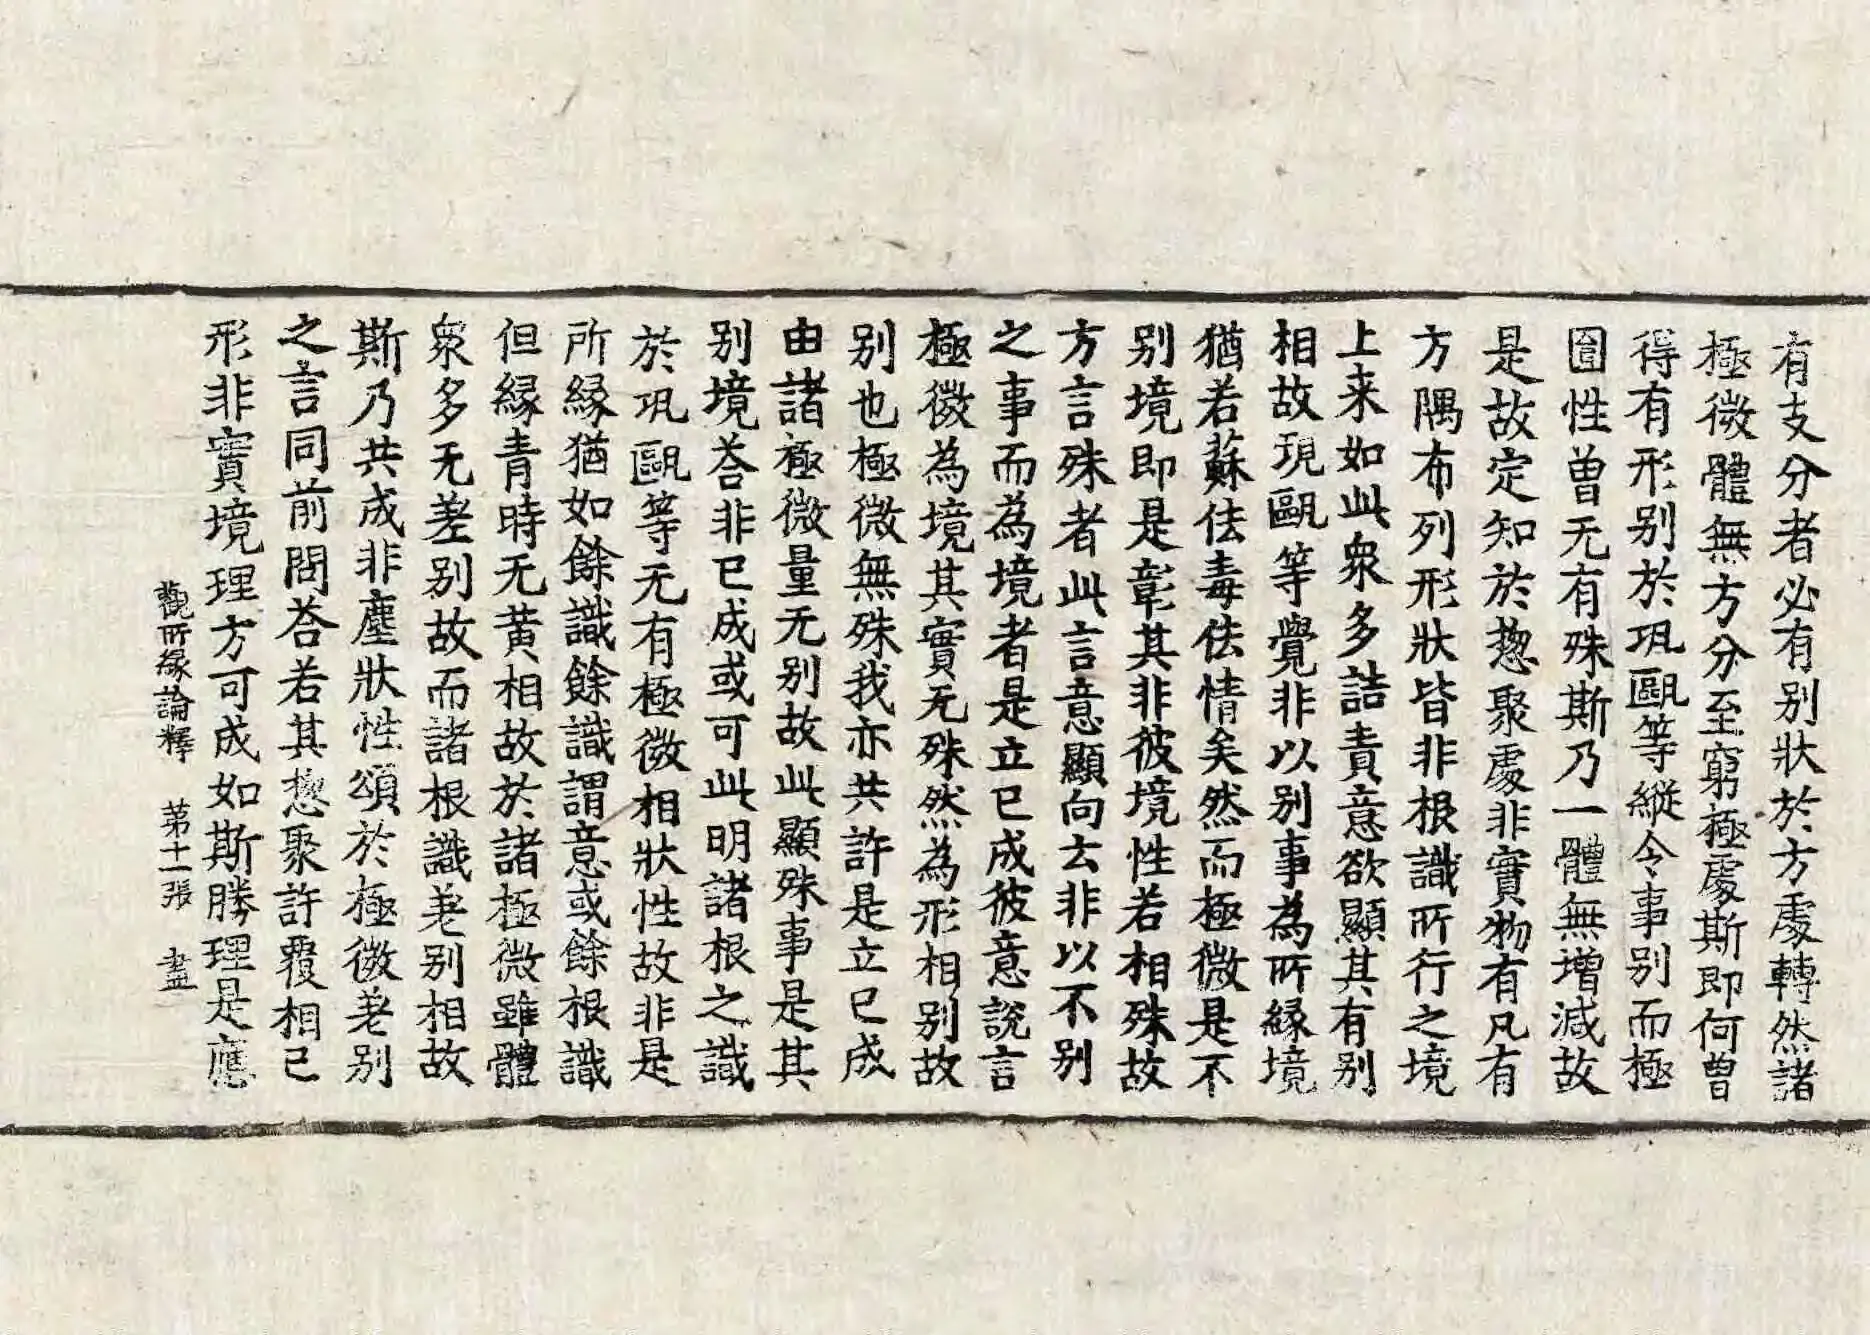 有支分者必有别狀於方處轉然諸
極微體無方分至窮極處斯即何曾
得有形别於瓨甌等縱令事别而極
圎性曽无有殊斯乃一體無增減故
是故定知於揔聚處非實物有凡有
方隅布列形狀皆非根識所行之境
上来如此衆多詰責意欲顯其有别
相故現甌等覺非以别事為所緣境
猶若蘇佉毒佉情矣然而極微是不
别境即是彰其非彼境性若相殊故
方言殊者此言意顯向去非以不别
之事而為境者是立已成彼意說言
極微為境其實无殊然為形相别故
别也極微無殊我亦共許是立已成
由諸極微量无别故此顯殊事是其
别境荅非已成或可此明諸根之識
於瓨甌等无有極微相狀性故非是
所緣猶如餘識餘識謂意或餘根識
但緣青時无黄相故於諸極微雖體
衆多无差别故而諸根識差别相故
斯乃共成非塵狀性頌於極微差别
之言同前問荅若其揔聚許覆相已
形非實境理方可成如斯勝理是應
觀所緣論釋　第十一張　盡